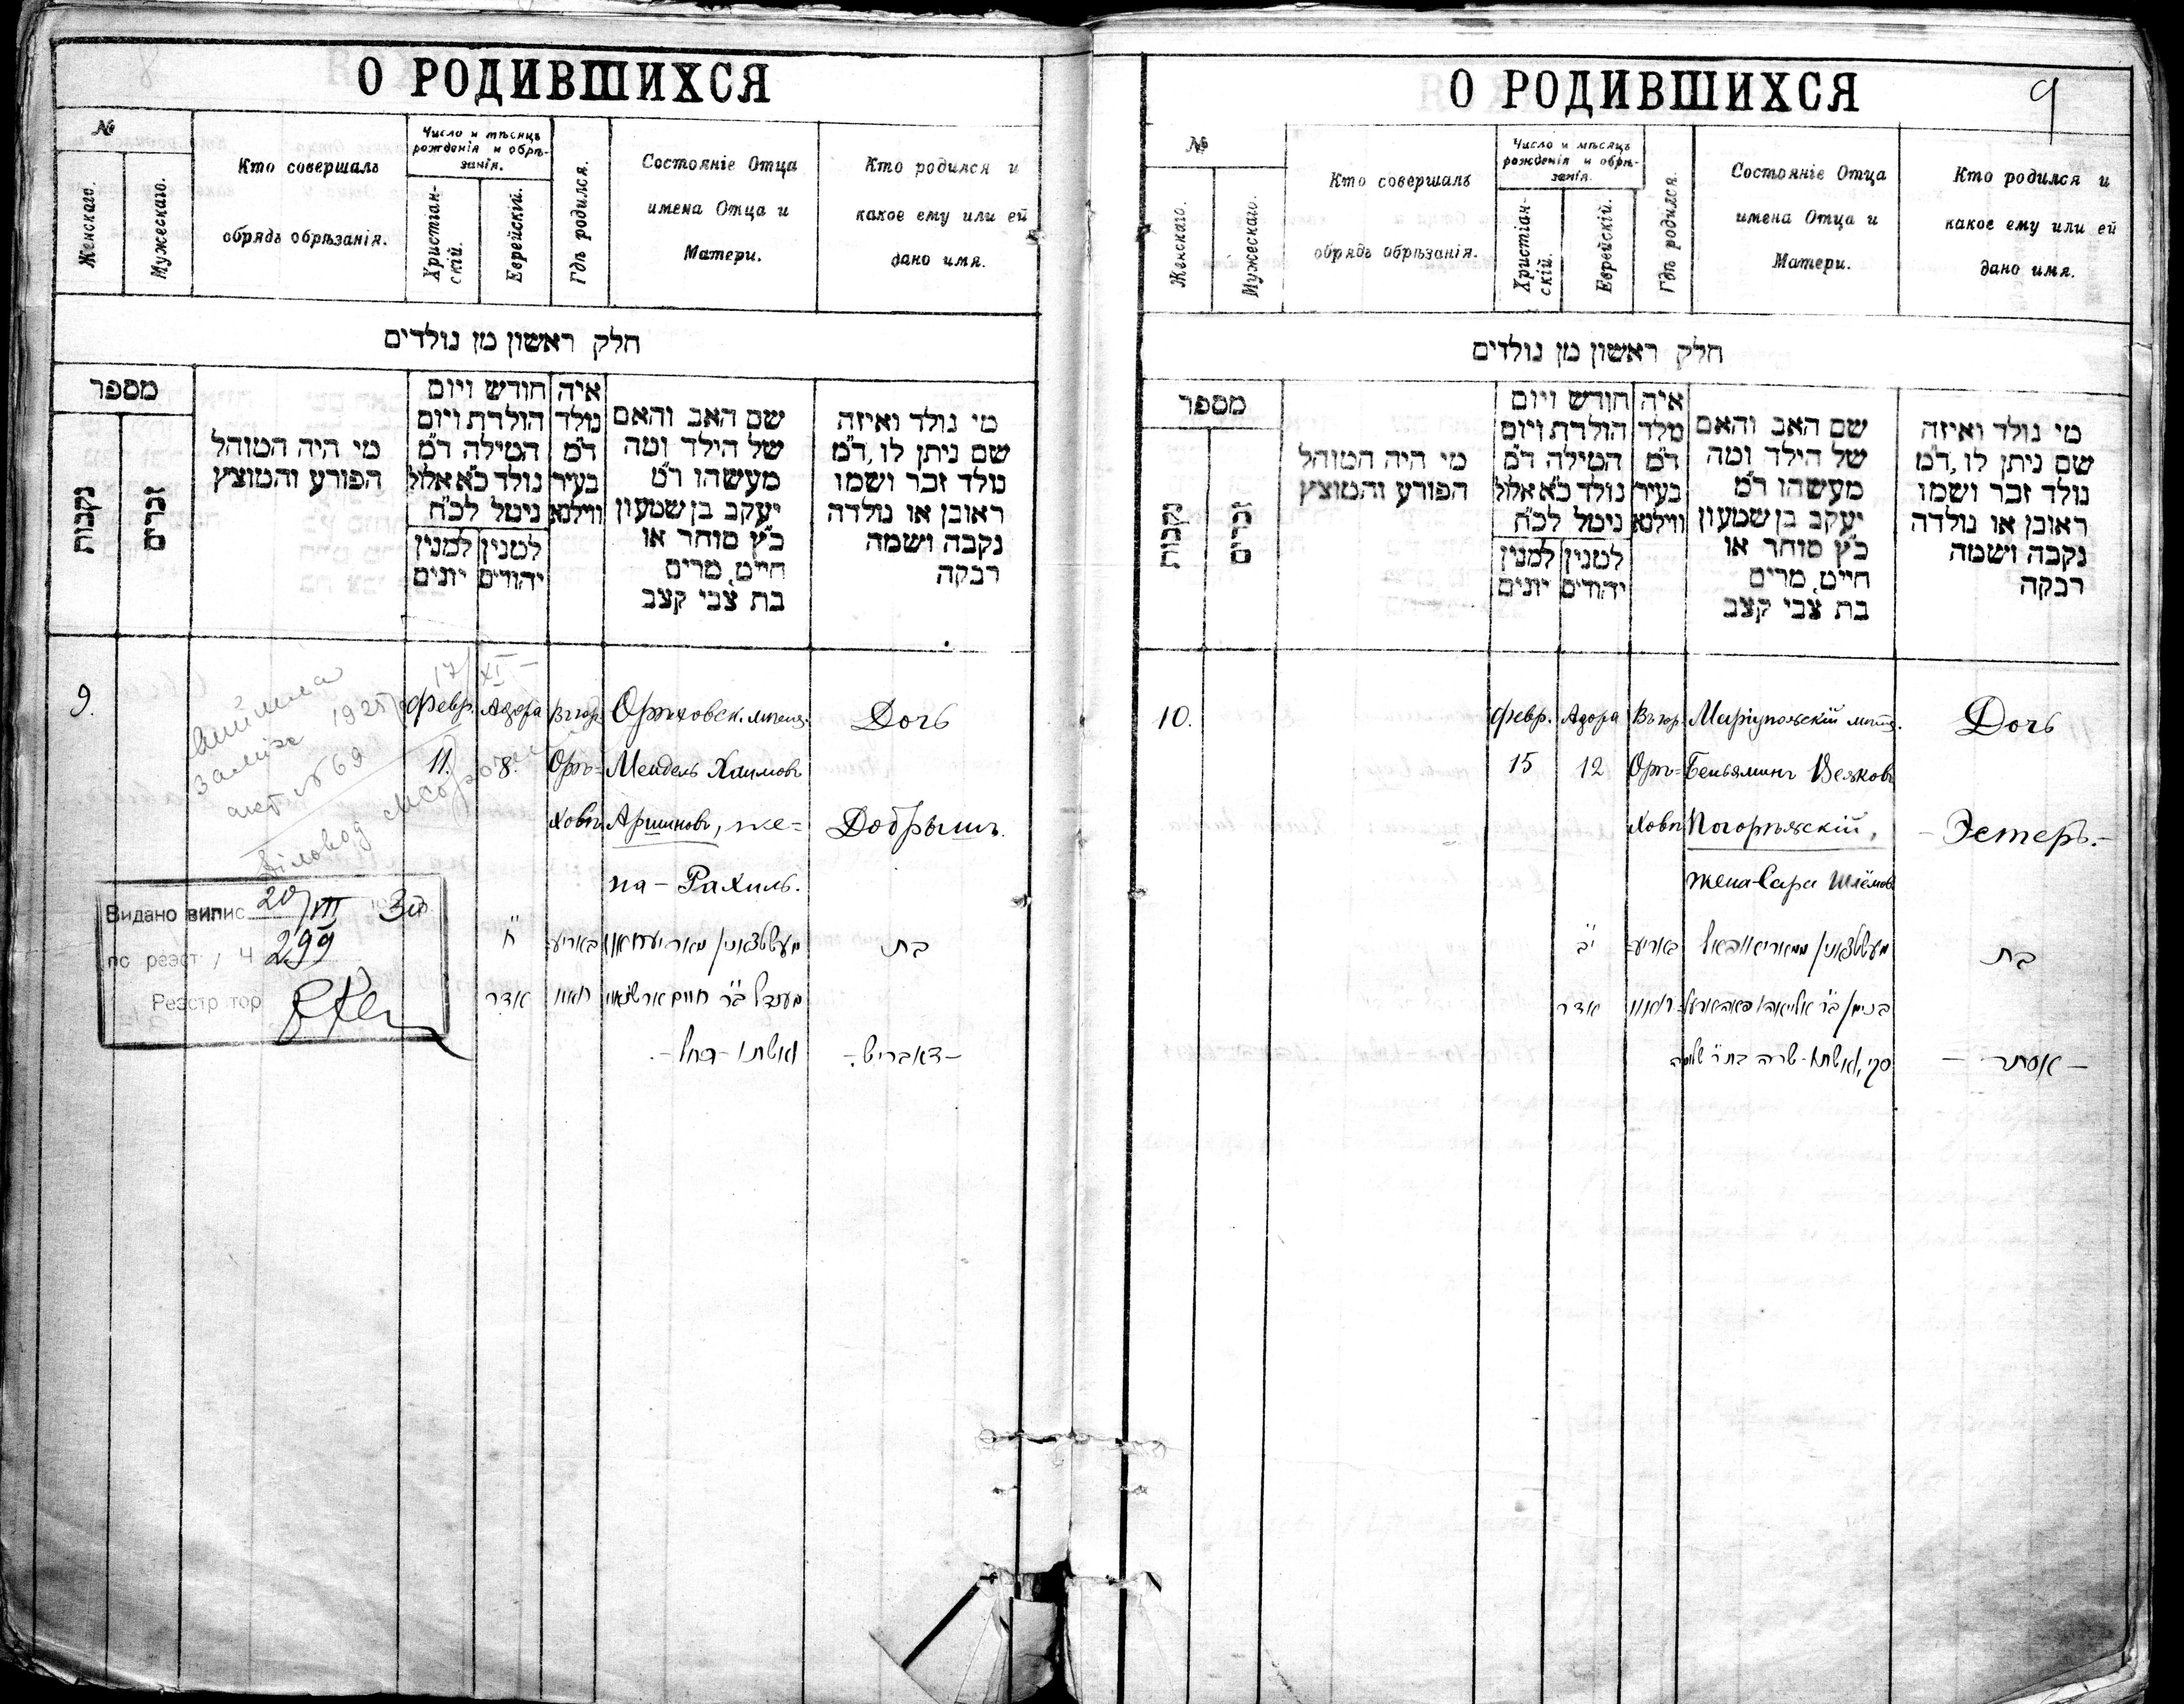 О РОДИВШИХСЯ
№
Женскаго.
Мужескаго.
Кто совершалъ
обрядъ обрѣзанія.
Число и мѣсяцъ
рожденія и обрѣ-
занія.
Христіан-
скій.
Еврейскій.
Гдѣ родился.
Состояніе Отца
имена Отца и
Матери.
Кто родился и
какое ему или ей
дано имя.
חלק ראשון מן נולדים
מספר
נקבות
זכרים
מי היה המוהל
הפורע והמוצץ
חודש ויום
הולדת ויום
המילה ד"מ
נולד כ"א אלול
ניטל לכ"ח
למנין
יהודים
למנין
יונים
איה
נולד
ד"מ
בעיר
ווילנא
שם האב והאם
של הילד ומה
מעשהו ד"מ
יעקב בן שמעון
כ"ץ סוחר או
חייט, מרים
בת צבי קצב
מי נולד ואיזה
שם ניתן לו, ד"מ
נולד זכר ושמו
ראובן או נולדה
נקבה ושמה
רבקה
9.
17/XI
1925
заміж
акт № 69
Діловод
Февр.
11.
Адора
8.
Въ гор.
Орѣ-
ховѣ
Орѣховск. мѣщ.
Мендель Хаимовъ
Аршиновъ, же=
на - Рахиль.
Дочь
Добрышъ.
ח
אדר
ואשתו - רחל -.
בת
- דאבריש -
Видано випис 20/VIII 30
по реєст / ч 299
Реєстратор
О РОДИВШИХСЯ
9
№
Женскаго.
Мужескаго.
Кто совершалъ
обрядъ обрѣзанія.
Число и мѣсяцъ
рожденія и обрѣ-
занія.
Христіан-
скій.
Еврейскій.
Гдѣ родился.
Состояніе Отца
имена Отца и
Матери.
Кто родился и
какое ему или ей
дано имя.
חלק ראשון מן נולדים
מספר
נקבות
זכרים
מי היה המוהל
הפורע והמוצץ
חודש ויום
הולדת ויום
המילה ד"מ
נולד כ"א אלול
ניטל לכ"ח
למנין
יהודים
למנין
יונים
איה
מלד
ד"מ
בעיר
ווילנא
שם האב והאם
של הילד ומה
מעשהו ד"מ
יעקב בן שמעון
כ"ץ סוחר או
חייט, מרים
בת צבי קצב
מי נולד ואיזה
שם ניתן לו, ד"מ
נולד זכר ושמו
ראובן או נולדה
נקבה ושמה
רבקה
10.
Февр.
15
Адора
12
Въ гор.
Орѣ=
ховѣ
Маріупольскій мѣщ.
Беньяминъ
Погорѣльскій,
жена-Сара Шлёмов.
Дочь
- Эстеръ. -
י"ב
אדר
סקי, ואשתו - שרה בת ר' שלמה
בת
- אסתר -